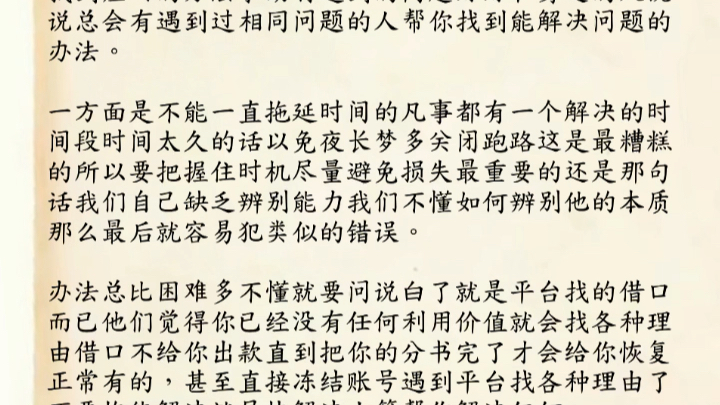 说总会有遇到过相同问题的人帮你找到能解决问题的
办法。
一方面是不能一直拖延时间的凡事都有一个解决的时
间段时间太久的话以免夜长梦多关闭跑路这是最糟糕
的所以要把握住时机尽量避免损失最重要的还是那句
话我们自己缺乏辨别能力我们不懂如何辨别他的本质
那么最后就容易犯类似的错误。
办法总比困难多不懂就要问说白了就是平台找的借口
而已他们觉得你已经没有任何利用价值就会找各种理
由借口不给你出款直到把你的分书完了才会给你恢复
正常有的，甚至直接冻结账号遇到平台找各种理由了